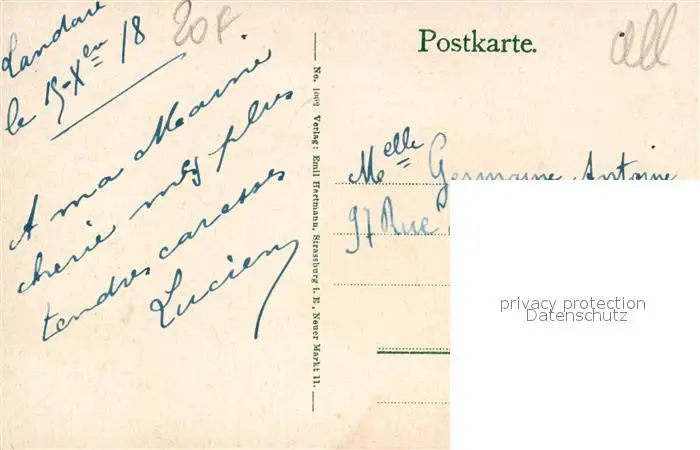 Landau
le 15-Xbre /18
20F
A ma Mainie
cherie mes plus
tendres caresses
Lucien
No. 1002 Verlag: Emil Hartmann, Strassburg i. E., Neuer Markt 11.
Postkarte.
Melle Germaine Antoine
97 Rue
privacy protection
Datenschutz